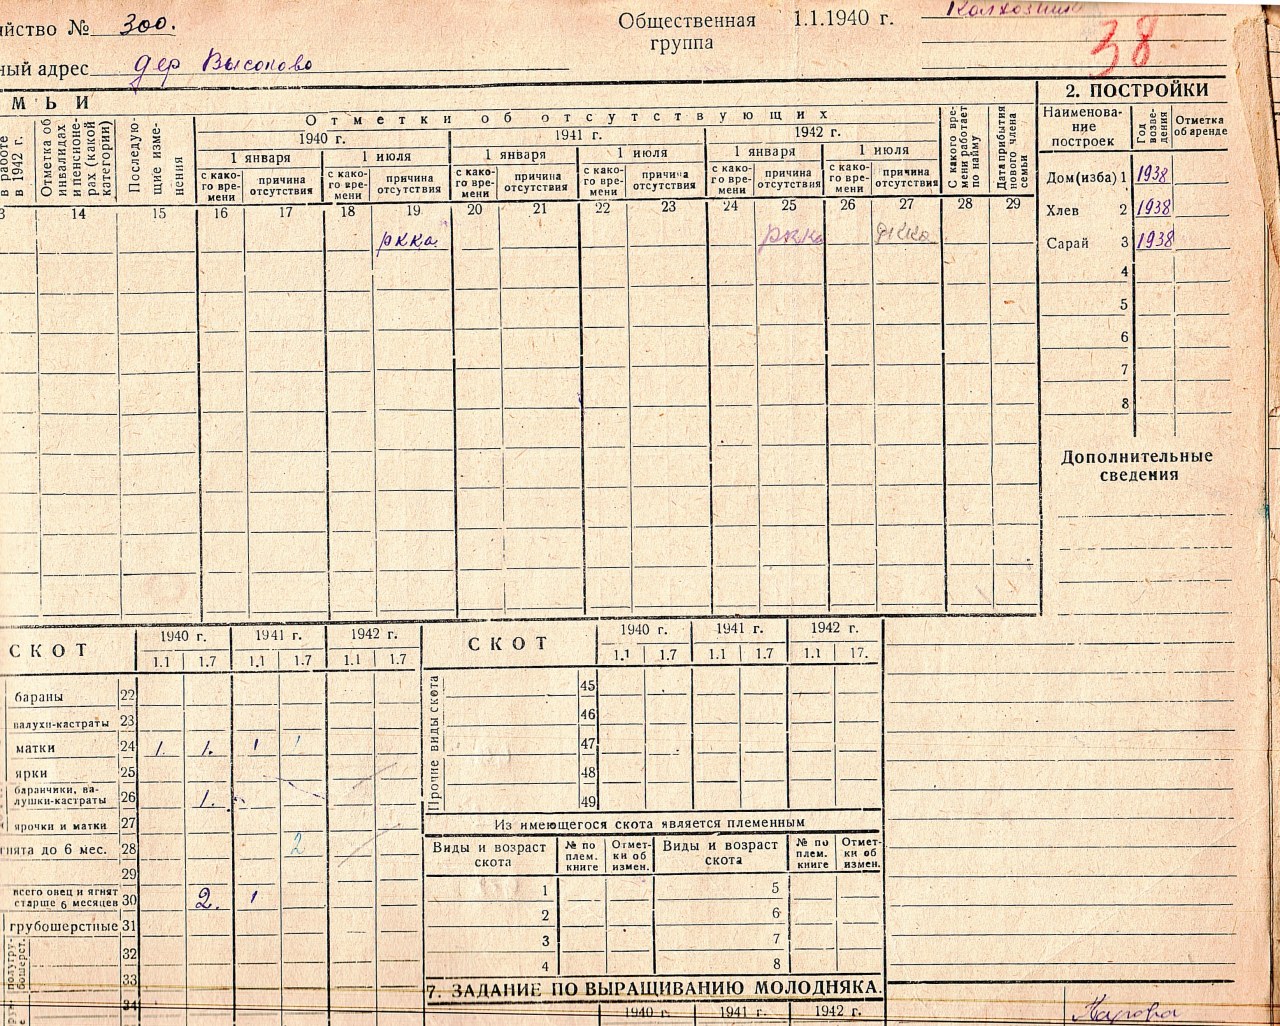 йство № 300.
Общественная 1.1.1940 г. Колхозник
группа
38
ный адрес дер Высоково
МЬИ
в работе в 1942 г.
Отметка об инвалидах и пенсионерах (какой категории)
Последующие изменения
Отметки об отсутствующих
1940 г. 1941 г. 1942 г.
1 января 1 июля 1 января 1 июля 1 января 1 июля
с како-го вре-мени причина отсутствия с како-го вре-мени причина отсутствия с како-го вре-мени причина отсутствия с како-го вре-мени причина отсутствия с како-го вре-мени причина отсутствия с како-го вре-мени причина отсутствия
С какого вре-мени работает по найму
Дата прибытия нового члена семьи
3 14 15 16 17 18 19 20 21 22 23 24 25 26 27 28 29
ркка ркка ркка
2. ПОСТРОЙКИ
Наименова-ние построек Год возве-дения Отметка об аренде
Дом(изба) 1 1938
Хлев 2 1938
Сарай 3 1938
4
5
6
7
8
Дополнительные
сведения
СКОТ 1940 г. 1941 г. 1942 г.
1.1 1.7 1.1 1.7 1.1 1.7
бараны 22
валухи-кастраты 23
матки 24 1. 1. 1 1
ярки 25
баранчики, ва-
лушки-кастраты 26 1.
ярочки и матки 27
гнята до 6 мес. 28 2
29
всего овец и ягнят
старше 6 месяцев 30 2. 1
грубошерстные 31
полугру-бошерст. 32
33
34
СКОТ 1940 г. 1941 г. 1942 г.
1.1 1.7 1.1 1.7 1.1 17.
Прочие виды скота
45
46
47
48
49
Из имеющегося скота является племенным
Виды и возраст скота № по плем. книге Отмет-ки об измен. Виды и возраст скота № по плем. книге Отмет-ки об измен.
1 5
2 6
3 7
4 8
7. ЗАДАНИЕ ПО ВЫРАЩИВАНИЮ МОЛОДНЯКА.
1940 г. 1941 г. 1942 г.